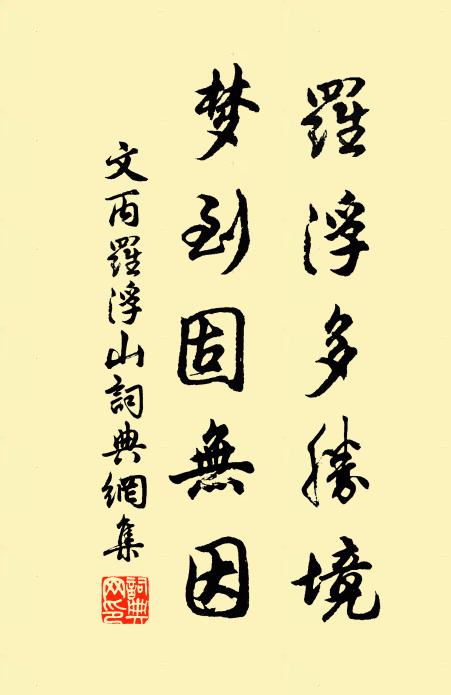 羅浮多勝境
梦到固無因
文丙羅浮山詞典網集
詞典网印